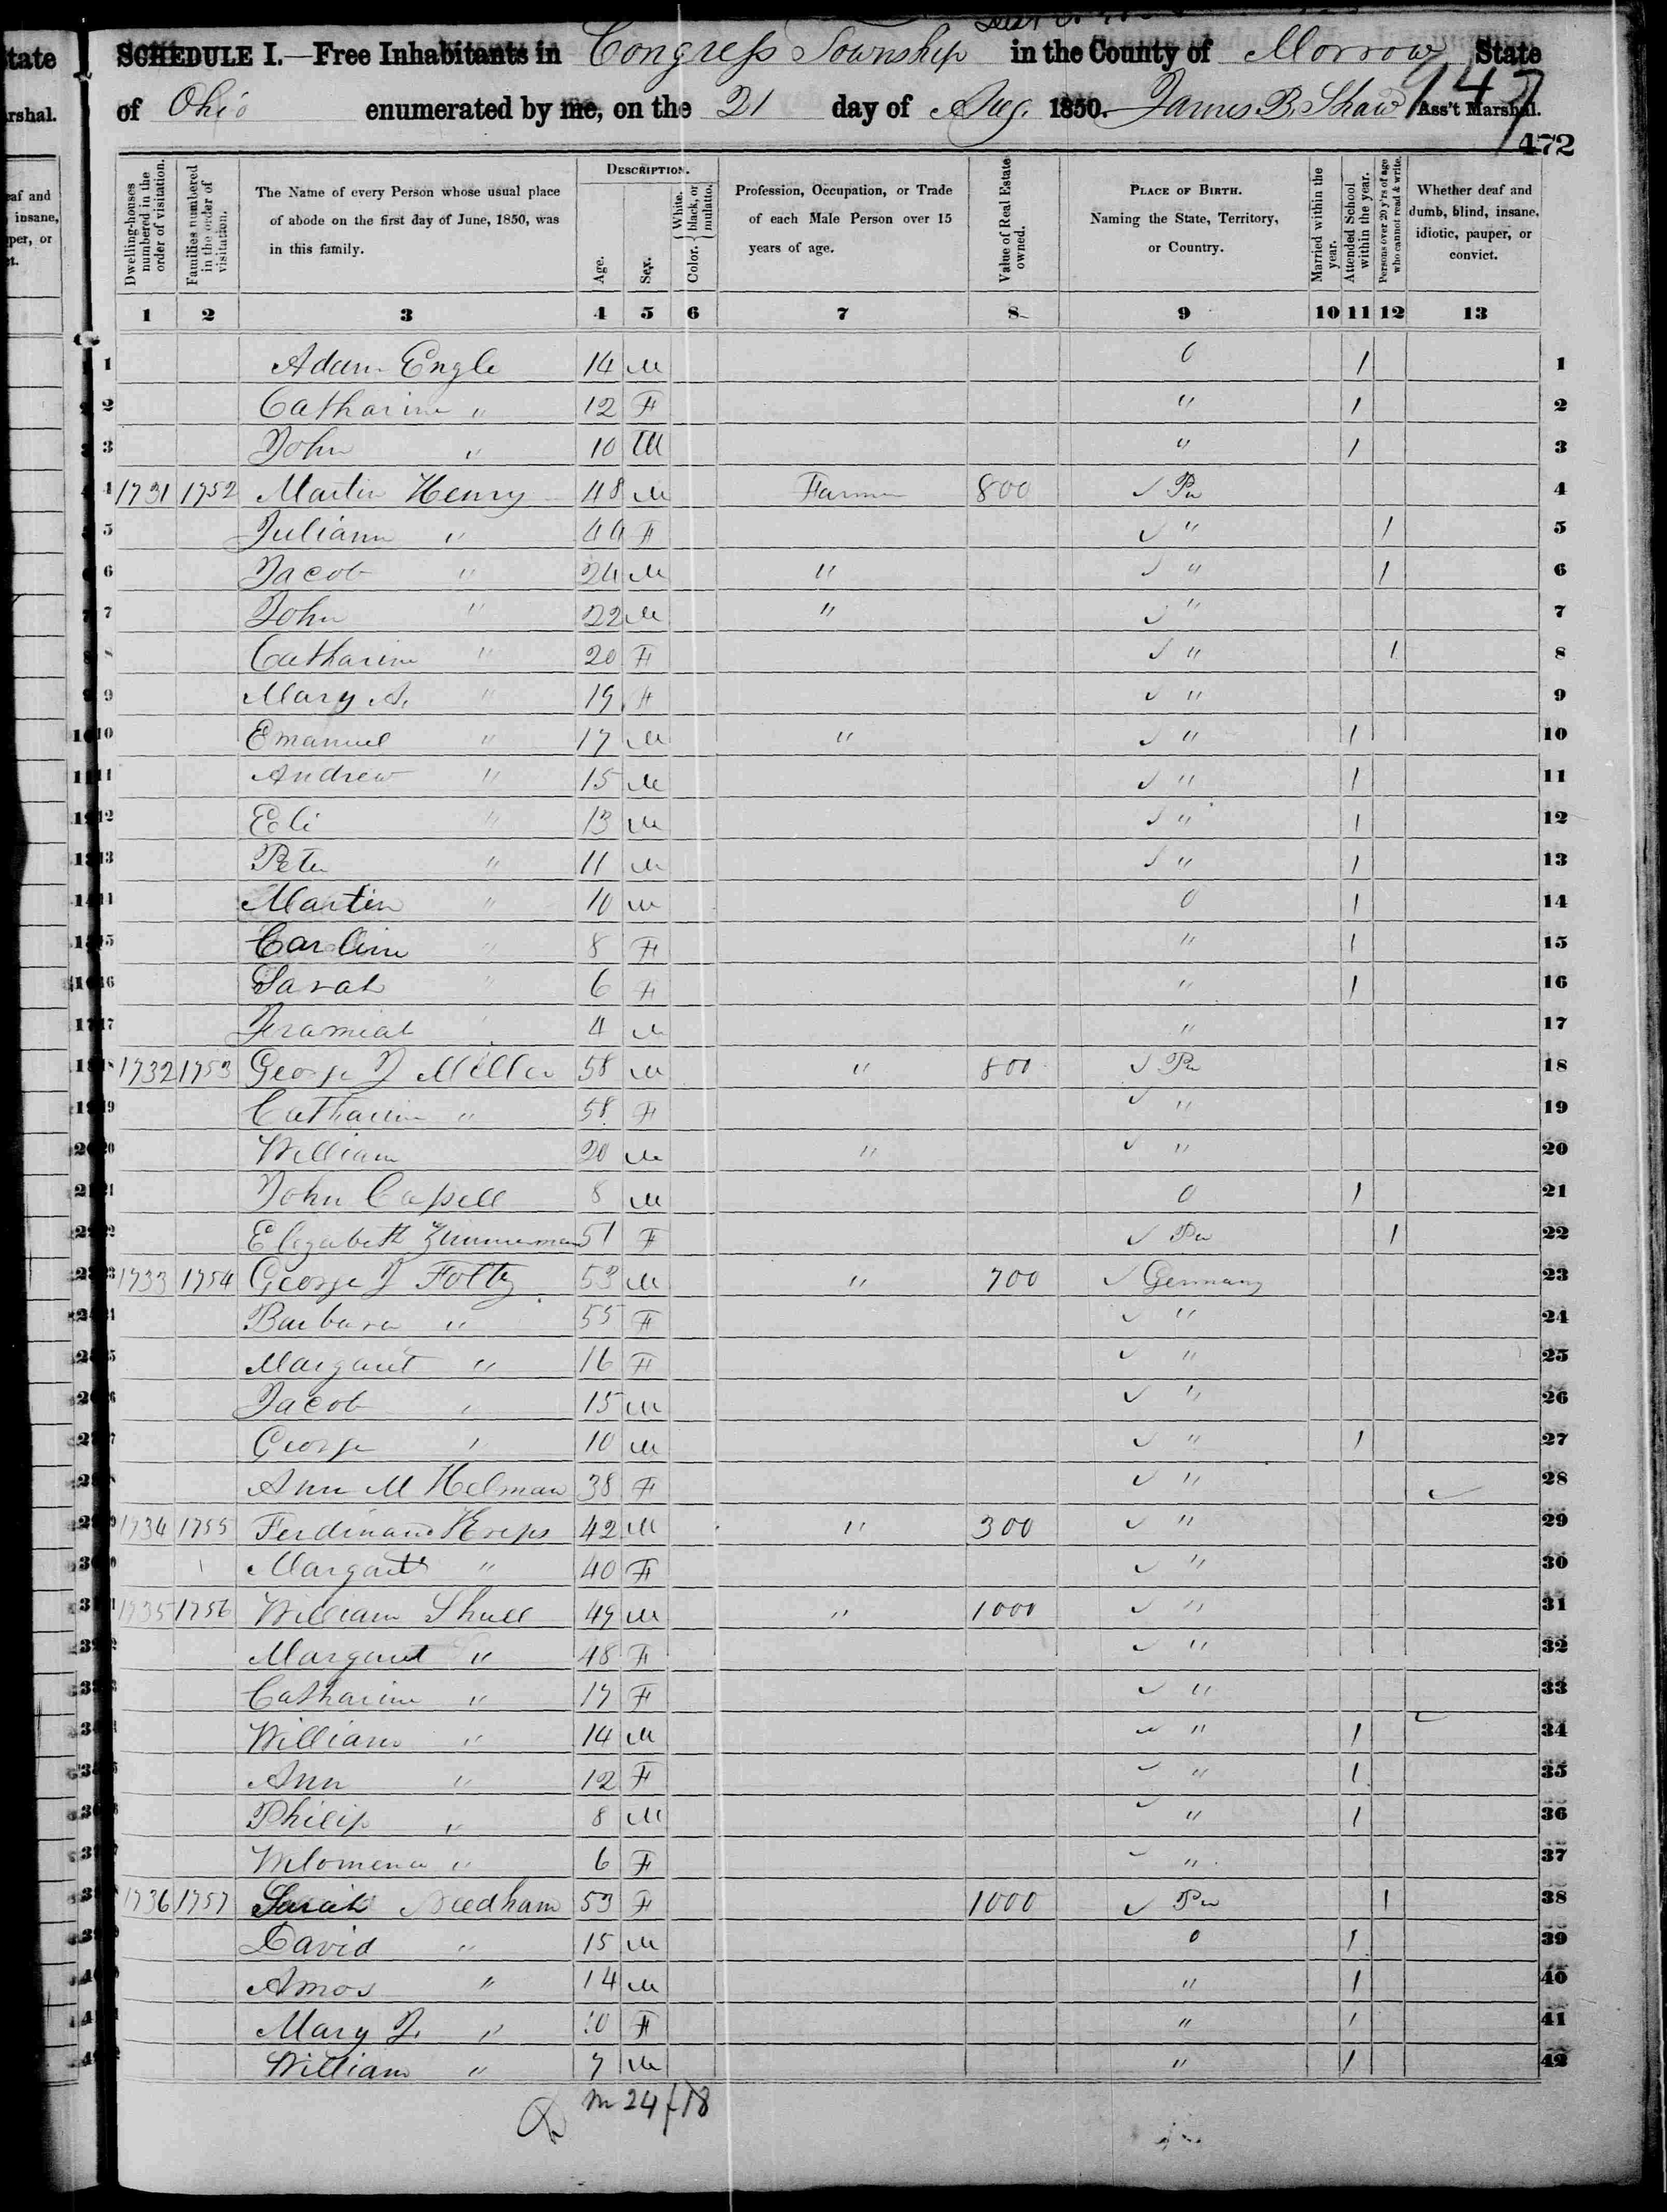 SCHEDULE I.—Free Inhabitants in Congress Township in the County of Morrow State
of Ohio enumerated by me, on the 21 day of Aug. 1850. James B. Shaw Ass't Marshal.
947
472
Dwelling-houses numbered in the order of visitation.
Families numbered in the order of visitation.
The Name of every Person whose usual place of abode on the first day of June, 1850, was in this family.
DESCRIPTION.
Age.
Sex.
Color. { White, black, or mulatto.
Profession, Occupation, or Trade of each Male Person over 15 years of age.
Value of Real Estate owned.
PLACE OF BIRTH. Naming the State, Territory, or Country.
Married within the year.
Attended School within the year.
Persons over 20 y'rs of age who cannot read & write.
Whether deaf and dumb, blind, insane, idiotic, pauper, or convict.
1 2 3 4 5 6 7 8 9 10 11 12 13
1 Adam Engle 14 M O / 1
2 Catharine " 12 F " / 2
3 John " 10 M " / 3
4 1731 1752 Martin Henry 48 M Farmer 800 ✓ Pa 4
5 Juliann " 44 F ✓ " / 5
6 Jacob " 24 M " ✓ " / 6
7 John " 22 M " ✓ " 7
8 Catharine " 20 F ✓ " / 8
9 Mary A. " 19 F ✓ " 9
10 Emanuel " 17 M " ✓ " / 10
11 Andrew " 15 M ✓ " / 11
12 Eli " 13 M ✓ " / 12
13 Peter " 11 M ✓ " / 13
14 Martin " 10 M O / 14
15 Caroline " 8 F " / 15
16 Sarah " 6 F " / 16
17 Jeramiah " 4 M " 17
18 1732 1753 George J Miller 58 M " 800 ✓ Pa 18
19 Catharine " 58 F ✓ " 19
20 William 20 M " ✓ " 20
21 John Capell 8 M O / 21
22 Elizabeth Zimmerman 51 F ✓ Pa / 22
23 1733 1754 George J Foltz 53 M " 700 ✓ Germany 23
24 Barbara " 55 F ✓ " 24
25 Margaret " 16 F ✓ " 25
26 Jacob " 15 M ✓ " 26
27 George " 10 M ✓ " / 27
28 Ann M Helman 38 F ✓ " 28
29 1734 1755 Ferdinand Kreps 42 M " 300 ✓ " 29
30 Margaret " 40 F ✓ " 30
31 1735 1756 William Shull 49 M " 1000 ✓ " 31
32 Margaret " 48 F ✓ " 32
33 Catharine " 17 F ✓ " 33
34 William " 14 M ✓ " / 34
35 Ann " 12 F ✓ " / 35
36 Philip " 8 M ✓ " / 36
37 " 6 F ✓ " 37
38 1736 1757 Sarah Needham 53 F 1000 ✓ Pa / 38
39 David " 15 M O / 39
40 Amos " 14 M " / 40
41 Mary J. " 10 F " / 41
42 William " 7 M " / 42
m 24 f 18